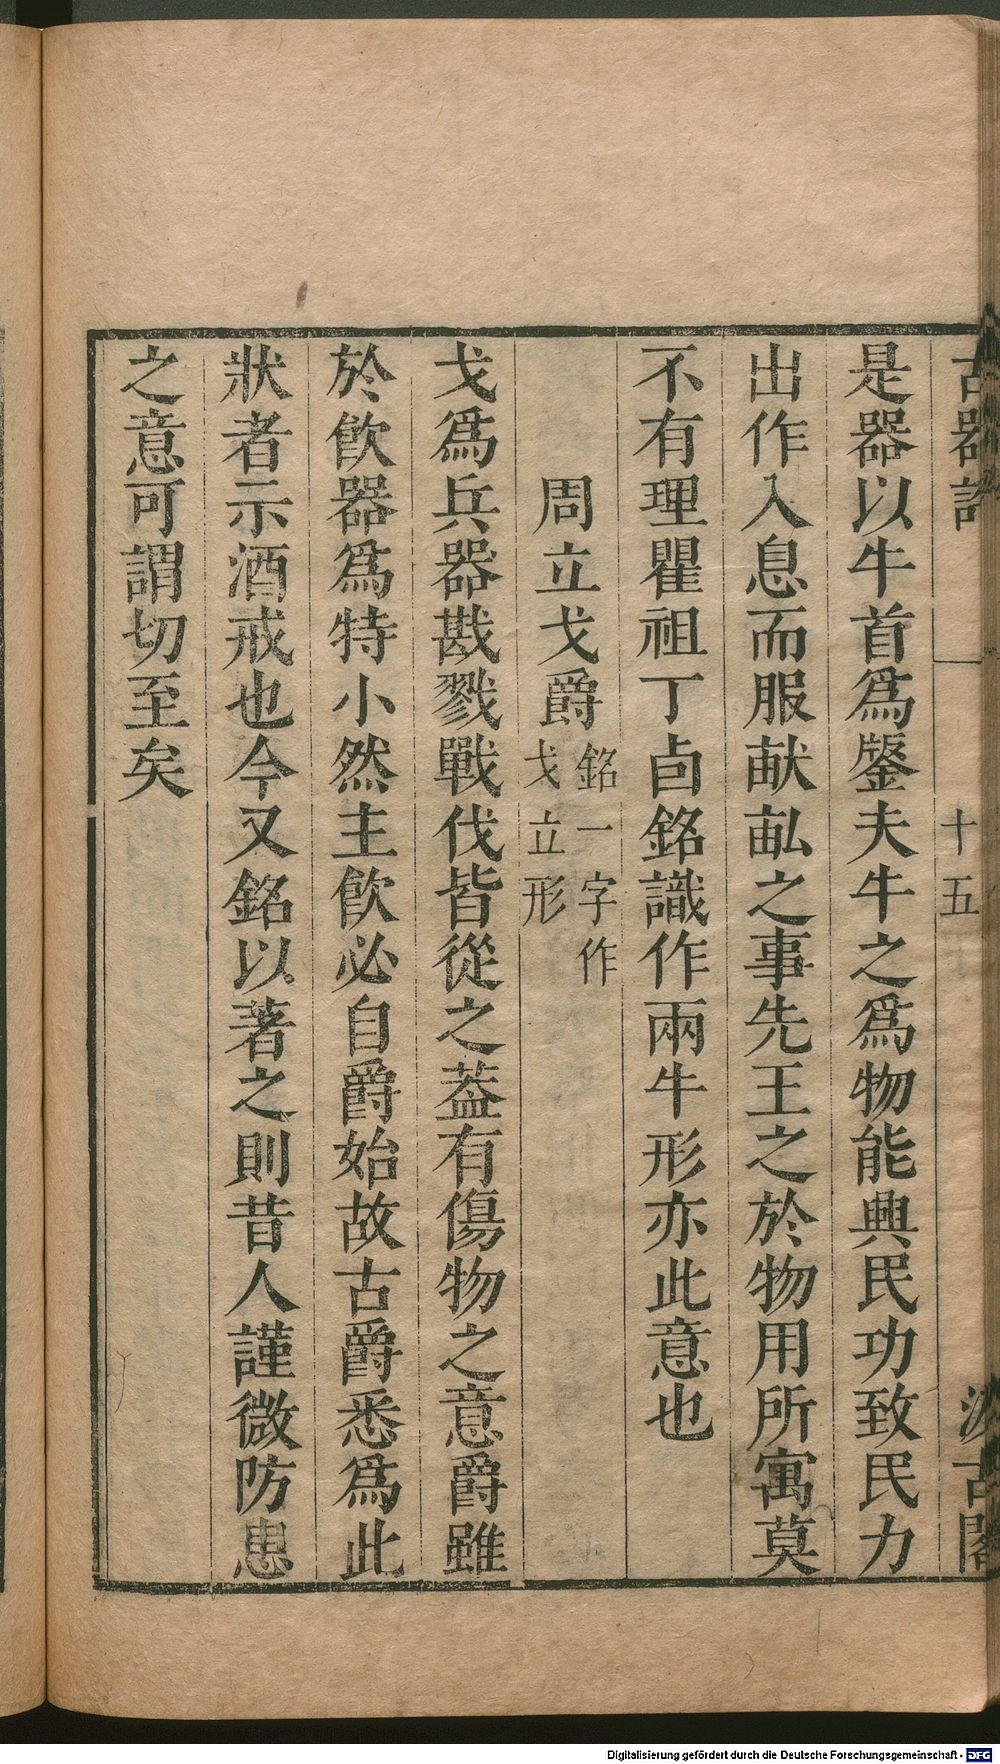 古器評 十五 汲古閣
是器以牛首爲鋬夫牛之爲物能興民功致民力
出作入息而服献畝之事先王之於物用所寓莫
不有理瞿祖丁卣銘識作兩牛形亦此意也
周立戈爵銘一字作
戈立形
戈爲兵器戡戮戰伐皆從之葢有傷物之意爵雖
於飮器爲特小然主飮必自爵始故古爵悉爲此
狀者示酒戒也今又銘以著之則昔人謹微防患
之意可謂切至矣
Digitalisierung gefördert durch die Deutsche Forschungsgemeinschaft - DFG